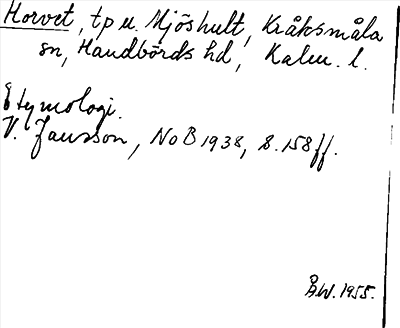 Horvet, tp u. Mjöshult, Kråksmåla
sn, Handbörds hd, Kalm. l.
Etymologi.
V. Jansson, NoB 1938, s. 158 ff.
Å.W. 1955.